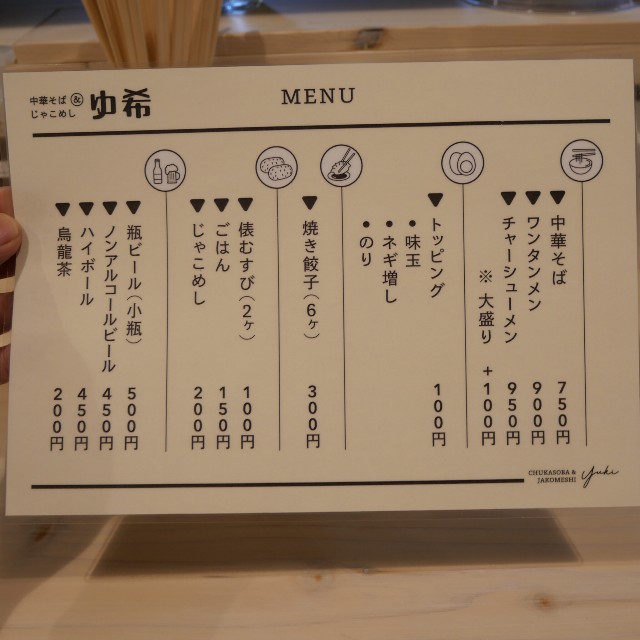 中華そば &
じゃこめし
ゆ希
MENU
中華そば 750円
ワンタンメン 900円
チャーシューメン 950円
※ 大盛り +100円
トッピング 100円
• 味玉
• ネギ増し
• のり
焼き餃子(6ヶ) 300円
俵むすび(2ヶ) 100円
ごはん 150円
じゃこめし 200円
瓶ビール(小瓶) 500円
ノンアルコールビール 450円
ハイボール 450円
烏龍茶 200円
CHUKASOBA &
JAKOMESHI
yuki